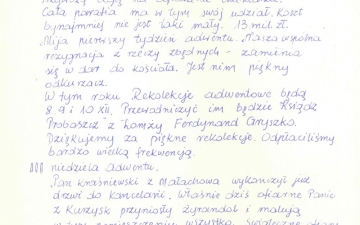 Cała parafia ma w tym swój udział. Koszt
bynajmniej nie jest taki mały. 13 mil. zł.
Mija pierwszy tydzień adwentu. Nasza wspólna
rezygnacja z rzeczy zbędnych - zamienia
się w dar do kościoła. Jest nim piękny
odkurzacz.
W tym roku Rekolekcje adwentowe będą
8, 9 i 10 XII. Przewodniczyć im będzie Ksiądz
Proboszcz z Łomży Ferdynand
Dziękujemy za piękne rekolekcje. Odpłaciliśmy
bardzo wielką frekwencją.
niedziela adwentu.
Pan Kraśniewski z Małachowa wykończył już
drzwi do kancelarii. Właśnie dziś ofiarne Panie
z Kurzysk przyniosły żyrandol i malują